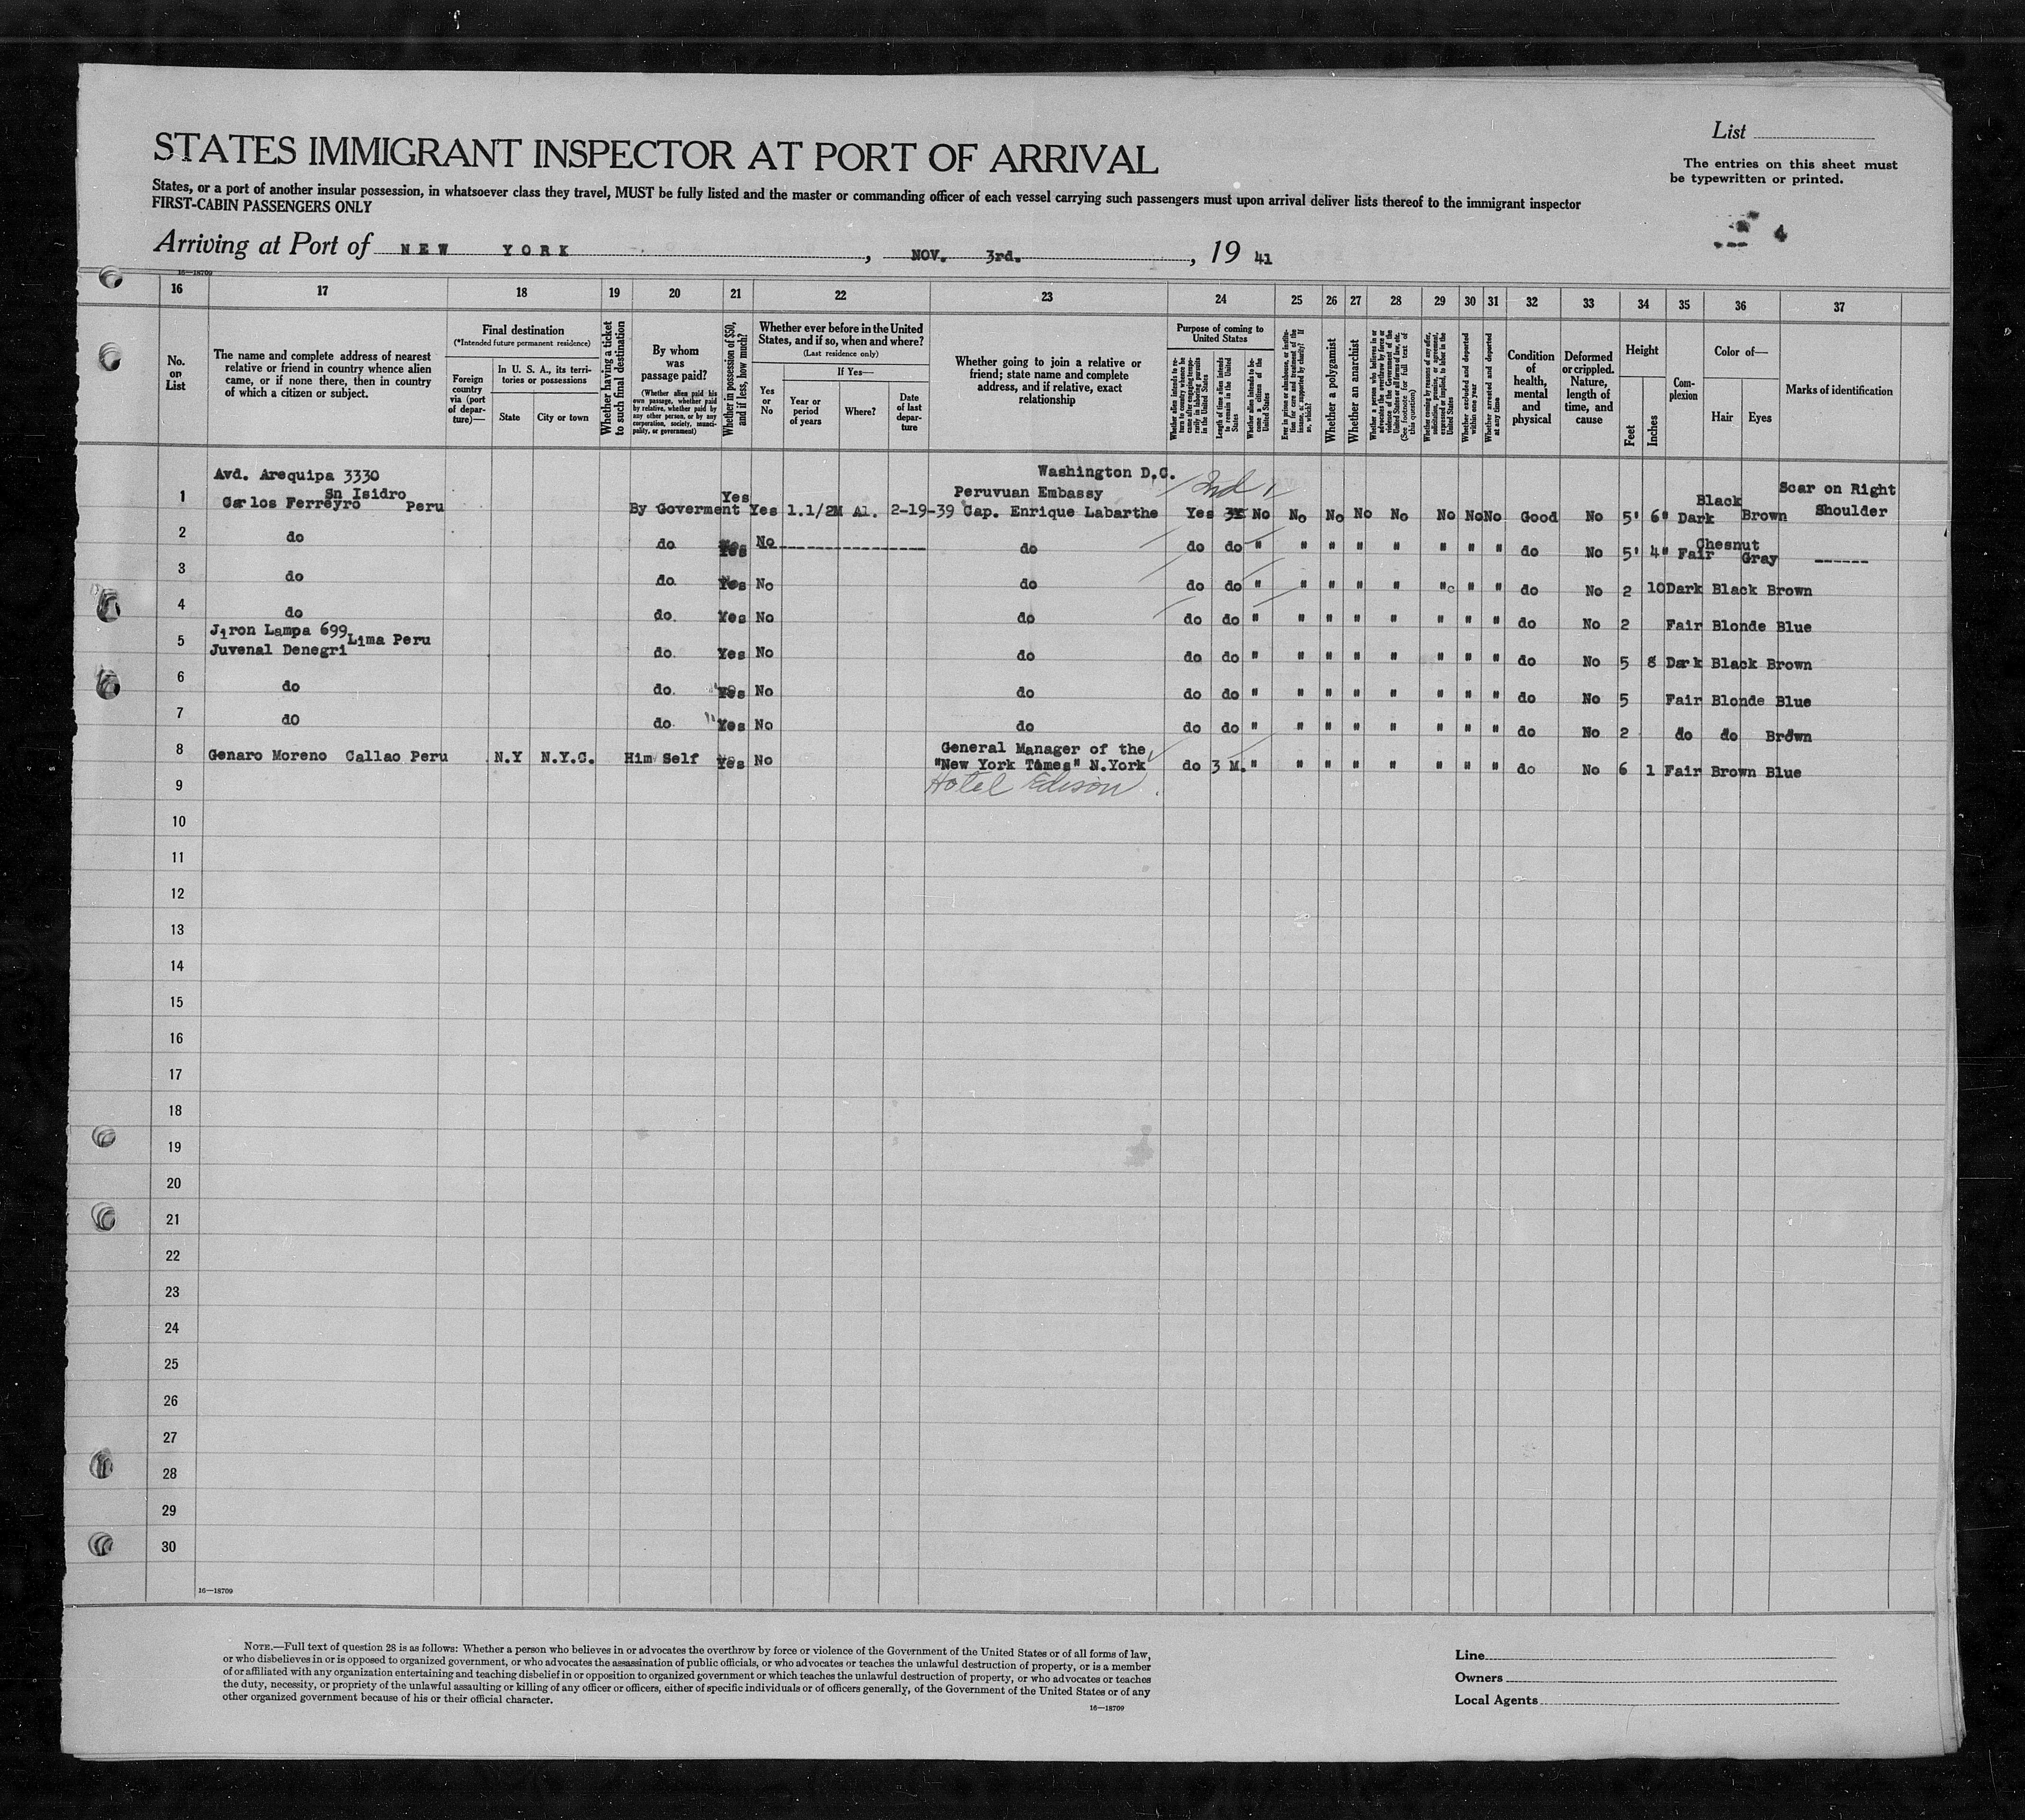 List
STATES IMMIGRANT INSPECTOR AT PORT OF ARRIVAL
The entries on this sheet must
be typewritten or printed.
States, or a port of another insular possession, in whatsoever class they travel, MUST be fully listed and the master or commanding officer of each vessel carrying such passengers must upon arrival deliver lists thereof to the immigrant inspector
FIRST-CABIN PASSENGERS ONLY
4
Arriving at Port of NEW YORK, NOV. 3rd., 19 41
16—18709
16 17 18 19 20 21 22 23 24 25 26 27 28 29 30 31 32 33 34 35 36 37
No. on List
The name and complete address of nearest relative or friend in country whence alien came, or if none there, then in country of which a citizen or subject.
Final destination
(*Intended future permanent residence)
Foreign country via (port of departure)—
In U. S. A., its territories or possessions
State
City or town
Whether having a ticket to such final destination
By whom was passage paid?
(Whether alien paid his own passage, whether paid by relative, whether paid by any other person, or by any corporation, society, municipality, or government)
Whether in possession of $50, and if less, how much?
Whether ever before in the United States, and if so, when and where?
(Last residence only)
Yes or No
If Yes—
Year or period of years
Where?
Date of last departure
Whether going to join a relative or friend; state name and complete address, and if relative, exact relationship
Purpose of coming to United States
Whether alien intends to return to country whence he came after engaging temporarily in laboring pursuits in the United States
Length of time alien intends to remain in the United States
Whether alien intends to become a citizen of the United States
Ever in prison or almshouse, or institution for care and treatment of the insane, or supported by charity? If so, which?
Whether a polygamist
Whether an anarchist
Whether a person who believes in or advocates the overthrow by force or violence of the Government of the United States or all forms of law, etc. (See footnote for full text of this question)
Whether coming by reason of any offer, solicitation, promise, or agreement, expressed or implied, to labor in the United States
Whether excluded and deported within one year
Whether arrested and deported at any time
Condition of health, mental and physical
Deformed or crippled. Nature, length of time, and cause
Height
Feet
Inches
Complexion
Color of—
Hair
Eyes
Marks of identification
Avd. Arequipa 3330 Washington D.C. 2nd
1 Carlos Ferreyro Sn Isidro Peru By Goverment Yes Yes 1.1/2M Al. 2-19-39 Peruvuan Embassy Cap. Enrique Labarthe Yes No No No No No No No No Good No 5' 6" Dark Black Brown Scar on Right Shoulder
2 do do Yes No do do do " " " " " " " " do No 5' 4" Fair Chesnut Gray ------
3 do do Yes No do do do " " " " " " " " do No 2 10 Dark Black Brown
4 do do Yes No do do do " " " " " " " " do No 2 Fair Blonde Blue
5 Jiron Lampa 699 Lima Peru Juvenal Denegri do Yes No do do do " " " " " " " " do No 5 8 Dark Black Brown
6 do do Yes No do do do " " " " " " " " do No 5 Fair Blonde Blue
7 dO do Yes No do do do " " " " " " " " do No 2 do do Brown
8 Genaro Moreno Callao Peru N.Y N.Y.C. Him Self Yes No General Manager of the "New York Times" N.York do 3 M. " " " " " " " " do No 6 1 Fair Brown Blue
9 Hotel Edison
10
11
12
13
14
15
16
17
18
19
20
21
22
23
24
25
26
27
28
29
30
16—18709
NOTE.—Full text of question 28 is as follows: Whether a person who believes in or advocates the overthrow by force or violence of the Government of the United States or of all forms of law,
or who disbelieves in or is opposed to organized government, or who advocates the assassination of public officials, or who advocates or teaches the unlawful destruction of property, or is a member
of or affiliated with any organization entertaining and teaching disbelief in or opposition to organized government or which teaches the unlawful destruction of property, or who advocates or teaches
the duty, necessity, or propriety of the unlawful assaulting or killing of any officer or officers, either of specific individuals or of officers generally, of the Government of the United States or of any
other organized government because of his or their official character.
16—18709
Line
Owners
Local Agents